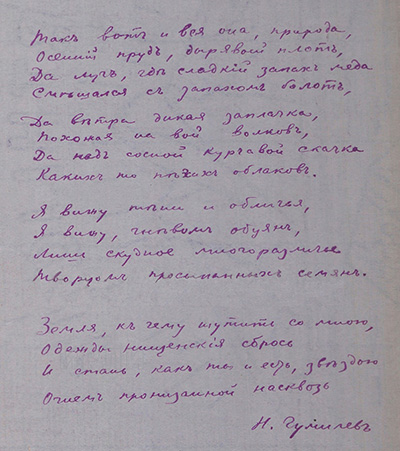 Такъ вотъ и вся она, природа,
Осенній прудъ, дырявой плотъ,
Да лугъ, гдѣ сладкій запахъ меда
Смѣшался съ запахомъ болотъ,
Да вѣтра дикая заплачка,
Похожая на вой волковъ,
Да надъ сосной курчавой скачка
Какихъ то пѣгихъ облаковъ.
Я вижу тѣни и обличья,
Я вижу, гнѣвомъ обуянъ,
Лишь скудное многоразличье
Творцомъ просыпанныхъ семянъ.
Земля, къ чему шутить со мною,
Одежды нищенскія сбрось
И стань, какъ ты и есть, звѣздою
Огнемъ пронизанной насквозь
Н. Гумилевъ